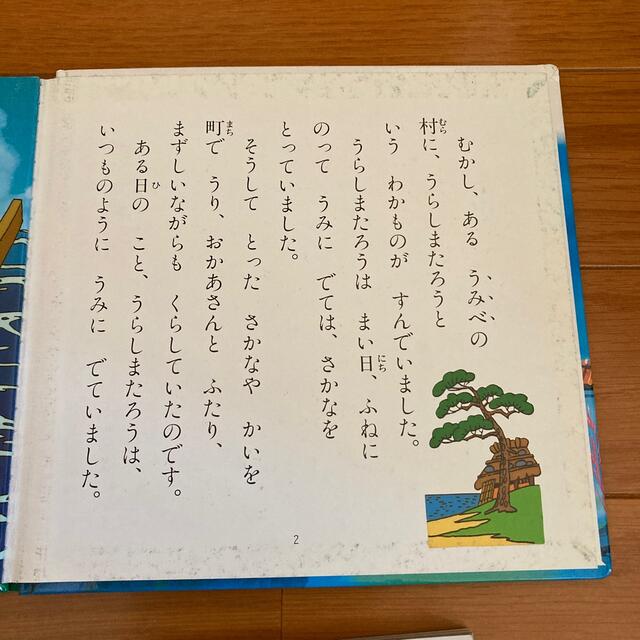 むかし、ある うみべの
村に、うらしまたろうと
いう わかものが すんでいました。
うらしまたろうは まい日、ふねに
のって うみに でては、さかなを
とっていました。
そうして とった さかなや かいを
町で うり、おかあさんと ふたり、
まずしいながらも くらしていたのです。
ある日の こと、うらしまたろうは、
いつものように うみに でていました。
2